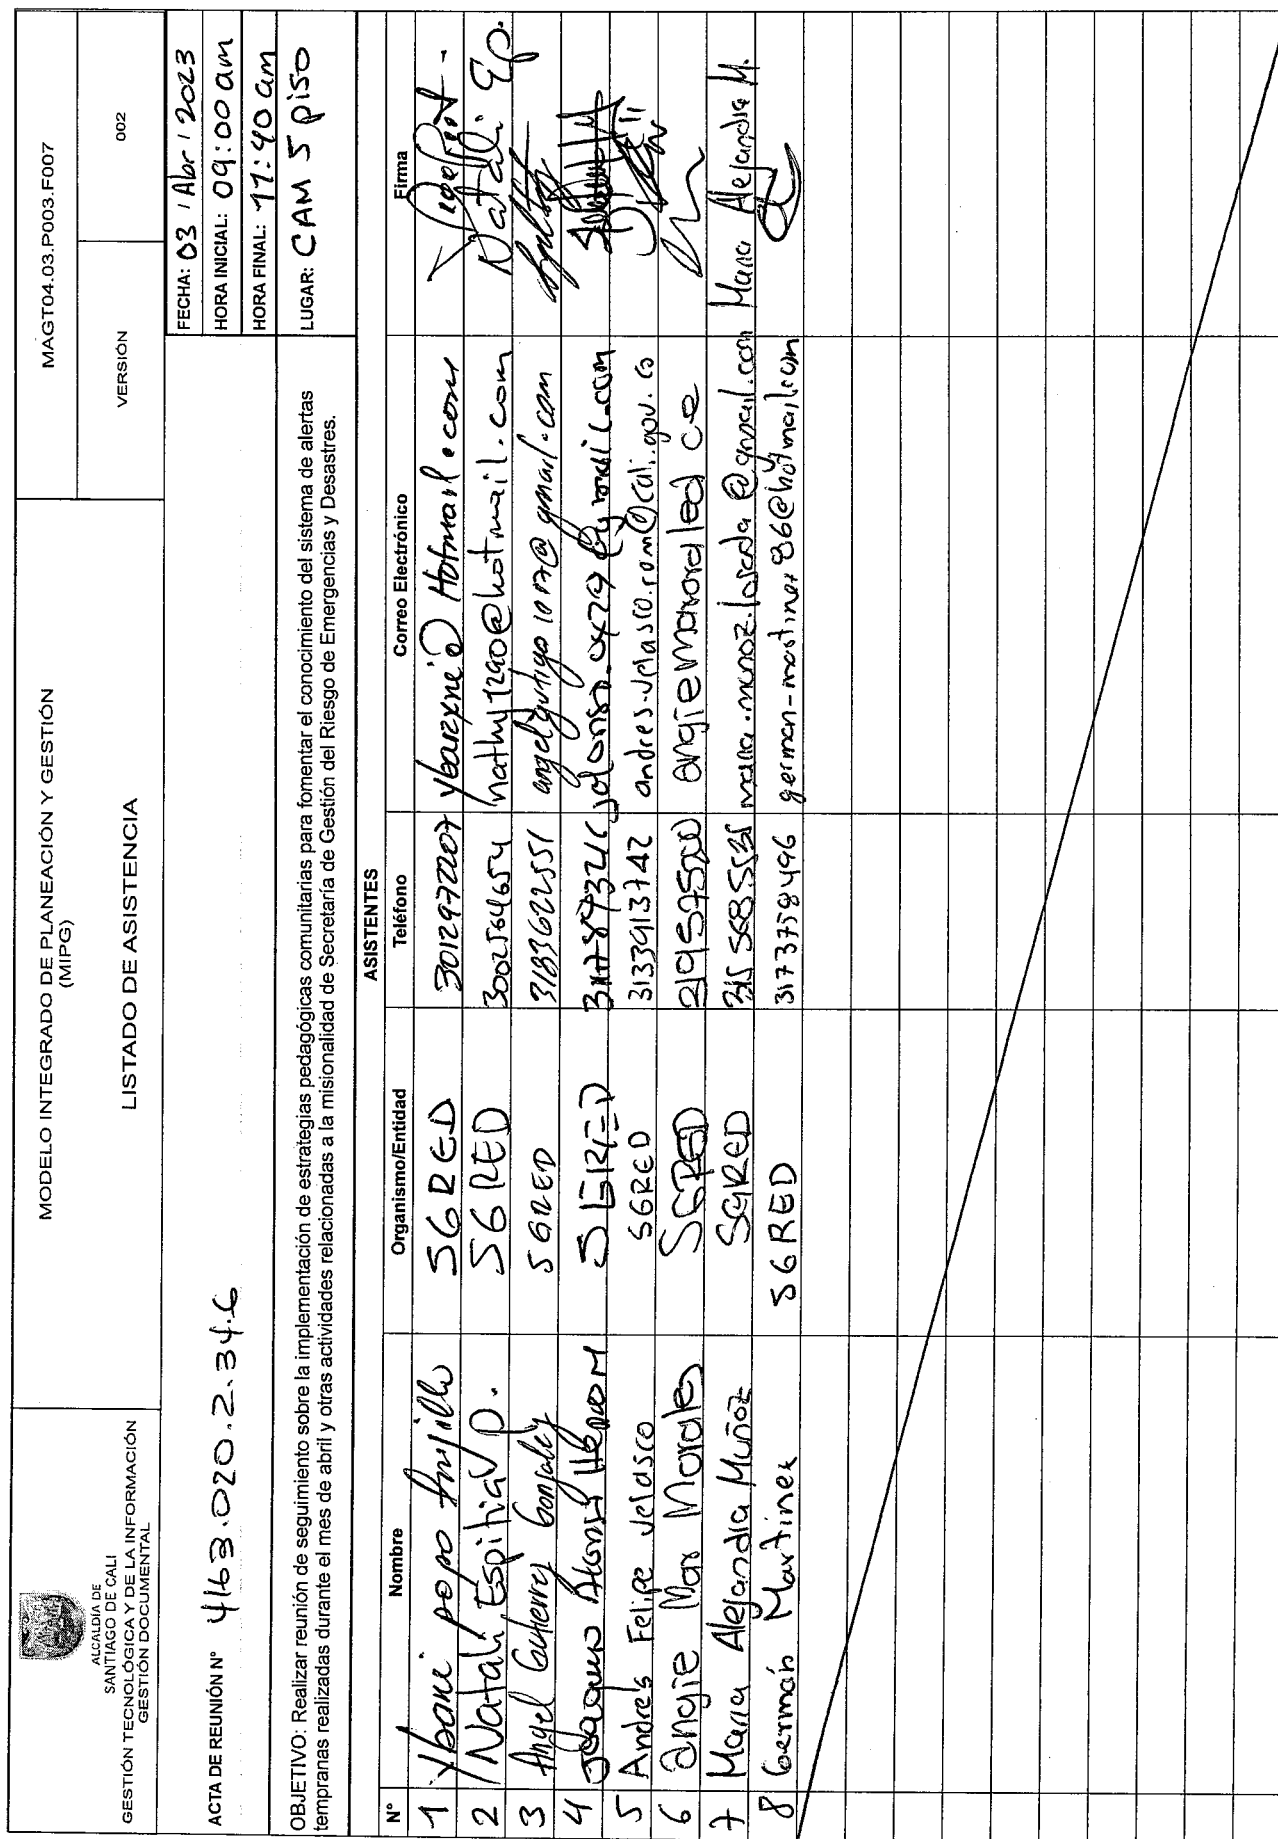 ALCALDÍA DE
SANTIAGO DE CALI
GESTIÓN TECNOLÓGICA Y DE LA INFORMACIÓN
GESTIÓN DOCUMENTAL
MODELO INTEGRADO DE PLANEACIÓN Y GESTIÓN
(MIPG)
LISTADO DE ASISTENCIA
MAGT04.03.P003.F007
VERSIÓN 002
ACTA DE REUNIÓN N° 4163.020.2.34.6
FECHA: 03 / Abr / 2023
HORA INICIAL: 09:00 am
HORA FINAL: 11:40 am
OBJETIVO: Realizar reunión de seguimiento sobre la implementación de estrategias pedagógicas comunitarias para fomentar el conocimiento del sistema de alertas
tempranas realizadas durante el mes de abril y otras actividades relacionadas a la misionalidad de Secretaría de Gestión del Riesgo de Emergencias y Desastres.
LUGAR: CAM 5 piso
ASISTENTES
N° Nombre Organismo/Entidad Teléfono Correo Electrónico Firma
1 popo SGRED 3012972207
2 Natali Espitia P. SGRED 3002564654 nathy1290@hotmail.com Natali Ep.
3 Angel Gutierrez Gonzalez SGRED 3183622551
4 Alonso
5 Andres Felipe Velasco SGRED 3133913742 andres.velasco.rom@cali.gov.co
6 angie Mar Morales SGRED
7 Maria Alejandra Muñoz SGRED 315 5685535 maria.munoz.losada@gmail.com Maria Alejandra M.
8 Germán Martinez SGRED 3173758496 german-martinez86@hotmail.com